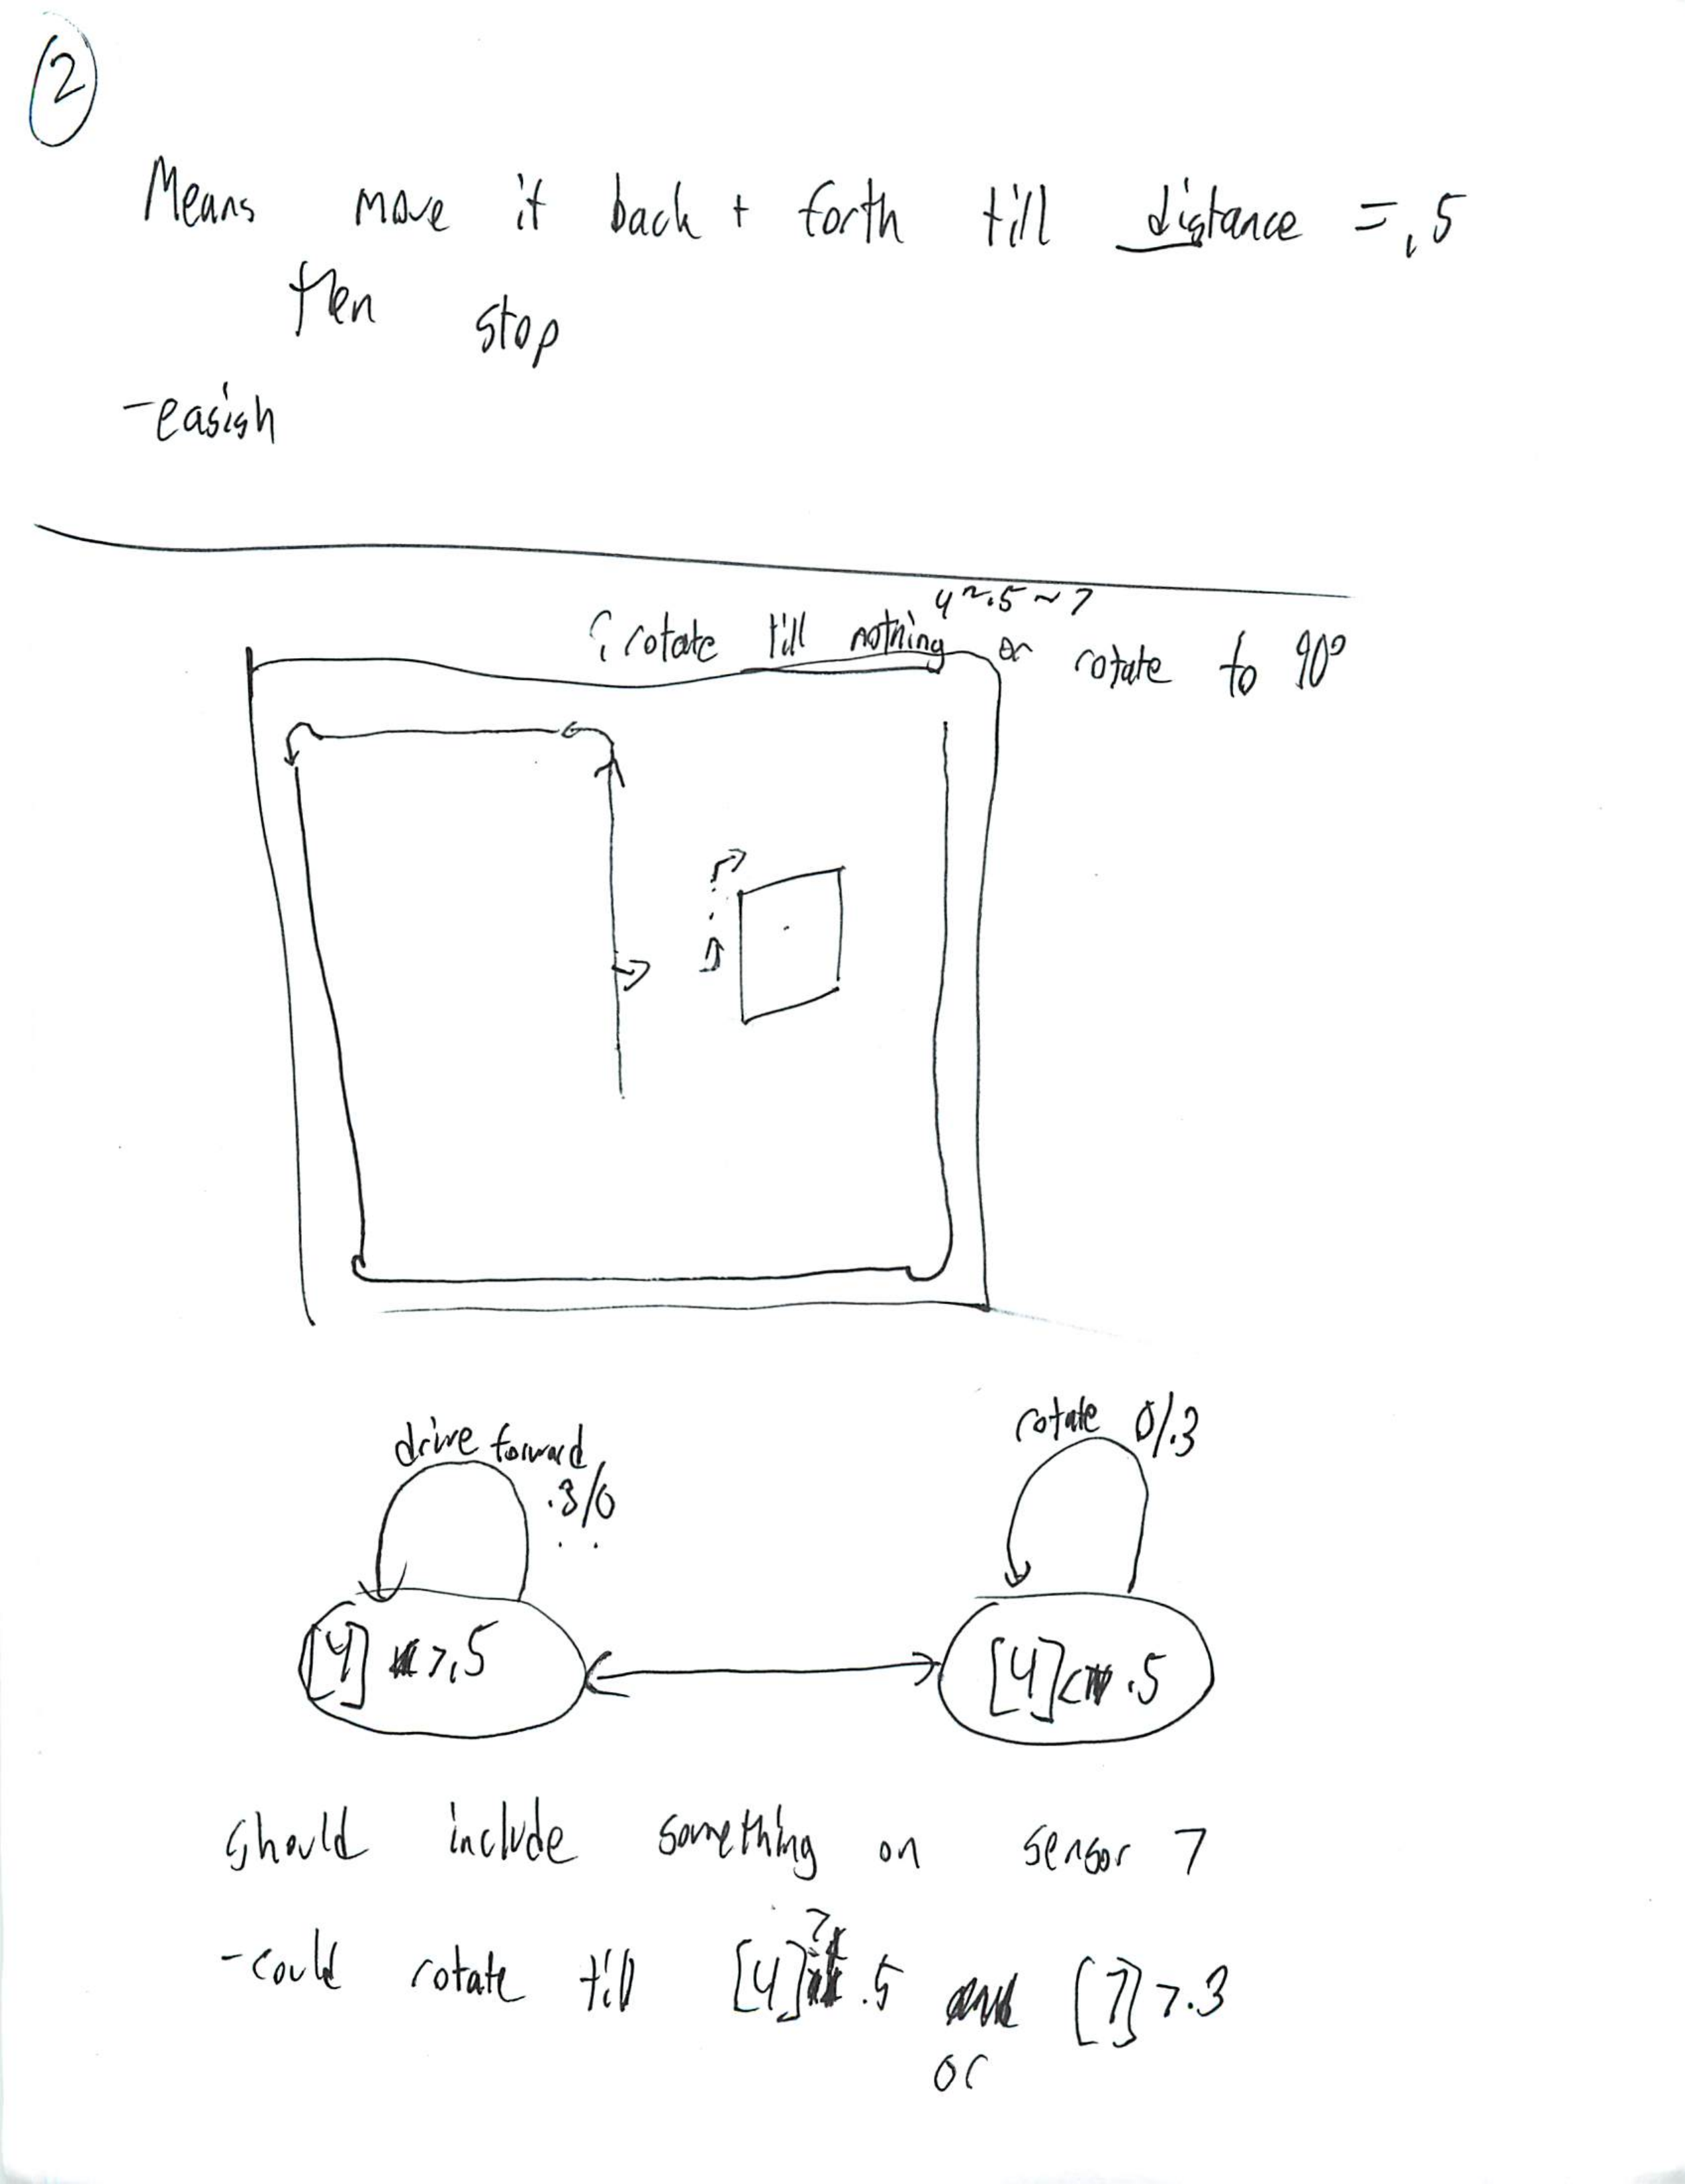 2
Means move it back + forth till distance = .5
then stop
-easish
4 ~ .5 ~ 7
rotate till nothing or rotate to 90°
drive forward
.3/0
rotate 0/.3
[4] >.5
[4] < .5
should include something on sensor 7
-could rotate till [4] > .5 [7] >.3
or